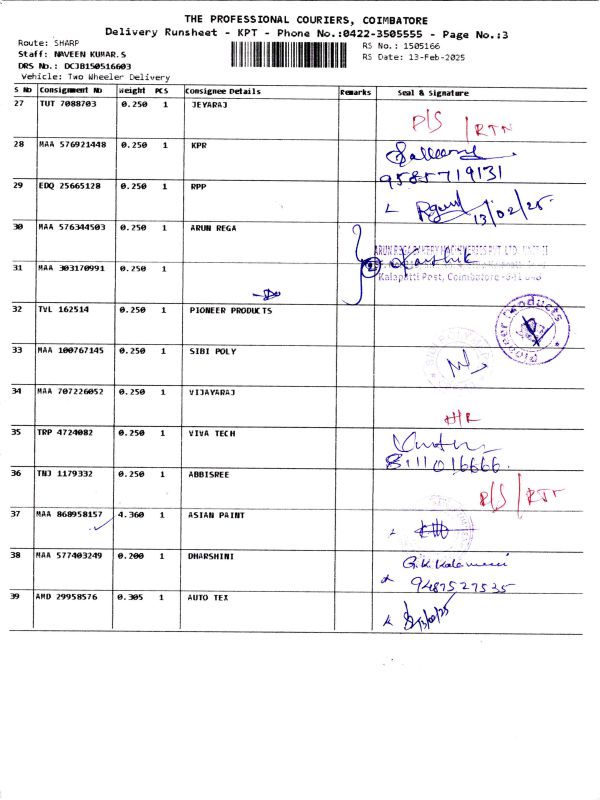 THE PROFESSIONAL COURIERS, COIMBATORE
Delivery Runsheet - KPT - Phone No.:0422-3505555 - Page No.:3
Route: SHARP
RS No.: 1505166
Staff: NAVEEN KUMAR.S
RS Date: 13-Feb-2025
DRS No.: DCJB150516603
Vehicle: Two Wheeler Delivery
S No Consignment No Weight PCS Consignee Details Remarks Seal & Signature
27 TUT 7088703 0.250 1 JEYARAJ
D/S /RTN
28 MAA 576921448 0.250 1 KPR
9585719131
29 EDQ 25665128 0.250 1 RPP
13/02/25
30 MAA 576344503 0.250 1 ARUN REGA
31 MAA 303170991 0.250 1
Do
2
Karthik
Kalapatti Post, Coimbatore
32 TVL 162514 0.250 1 PIONEER PRODUCTS
Pioneer Products
33 MAA 100767145 0.250 1 SIBI POLY
34 MAA 707226052 0.250 1 VIJAYARAJ
HR
35 TRP 4724082 0.250 1 VIVA TECH
8111016666
36 TNJ 1179332 0.250 1 ABBISREE
D/S /RTN
37 MAA 868958157 4.360 1 ASIAN PAINT
38 MAA 577403249 0.200 1 DHARSHINI
9487527535
39 AMD 29958576 0.305 1 AUTO TEX